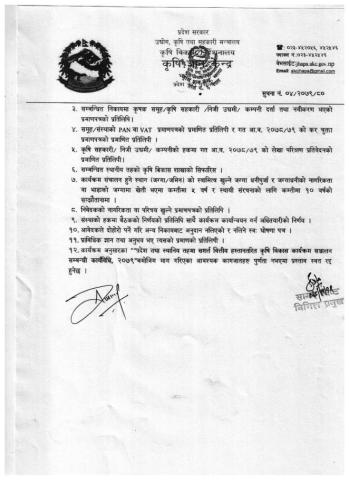 प्रदेश सरकार
उद्योग, कृषि तथा सहकारी मन्त्रालय
कृषि विकास निर्देशनालय
कृषि ज्ञान केन्द्र
वेबसाईटः jhapa.akc.gov.np
Email: akcjhapa@gmail.com
सूचना नं. ०४/२०७९/८०
३. सम्बन्धित निकायमा कृषक समूह/कृषि सहकारी /निजी उद्यमी/ कम्पनी दर्ता तथा नवीकरण भएको
प्रमाणपत्रको प्रतिलिपि।
४. समूह/संस्थाको PAN वा VAT प्रमाणपत्रको प्रमाणित प्रतिलिपी र गत आ.व. २०७८/७९ को कर चुक्ता
प्रमाणपत्रको प्रमाणित प्रतिलिपी ।
५. कृषि सहकारी/ निजी उद्यमी/ कम्पनीको हकमा गत आ.व. २०७८/७९ को लेखा परिक्षण प्रतिवेदनको
प्रमाणित प्रतिलिपी।
६. सम्बन्धित स्थानीय तहको कृषि विकास शाखाको सिफारिस ।
७. कार्यक्रम संचालन हुने स्थान (जग्गा/जमिन) को स्वामित्व खुल्ने जग्गा धनीपुर्जा र जग्गाधनीको नागरिकता
वा भाडाको जग्गामा खेती भएमा कम्तीमा ५ वर्ष र स्थायी संरचनाको लागि कम्तीमा १० वर्षको
सम्झौतानामा ।
८. निवेदकको नागरिकता वा परिचय खुल्ने प्रमाणपत्रको प्रतिलिपि ।
९. संस्थाको हकमा बैठकको निर्णयको प्रतिलिपि साथै कार्यक्रम कार्यान्वयन गर्न अख्तियारीको निर्णय ।
१०. आवेदकले दोहोरो पर्ने गरि अन्य निकायबाट अनुदान नलिएको र नलिने स्वः घोषणा पत्र ।
११. प्राविधिक ज्ञान तथा अनुभव भए त्यसको प्रमाणको प्रतिलिपी ।
१२. कार्यक्रम अनुसारका "प्रदेश तथा स्थानिय तहमा सशर्त वित्तीय हस्तान्तरित कृषि विकास कार्यक्रम सञ्चालन
सम्बन्धी कार्यविधि, २०७९"बमोजिम माग गरिएका आवश्यक कागजातहरु पूर्णता नभएमा प्रस्ताव स्वतः रद्द
हुनेछ ।